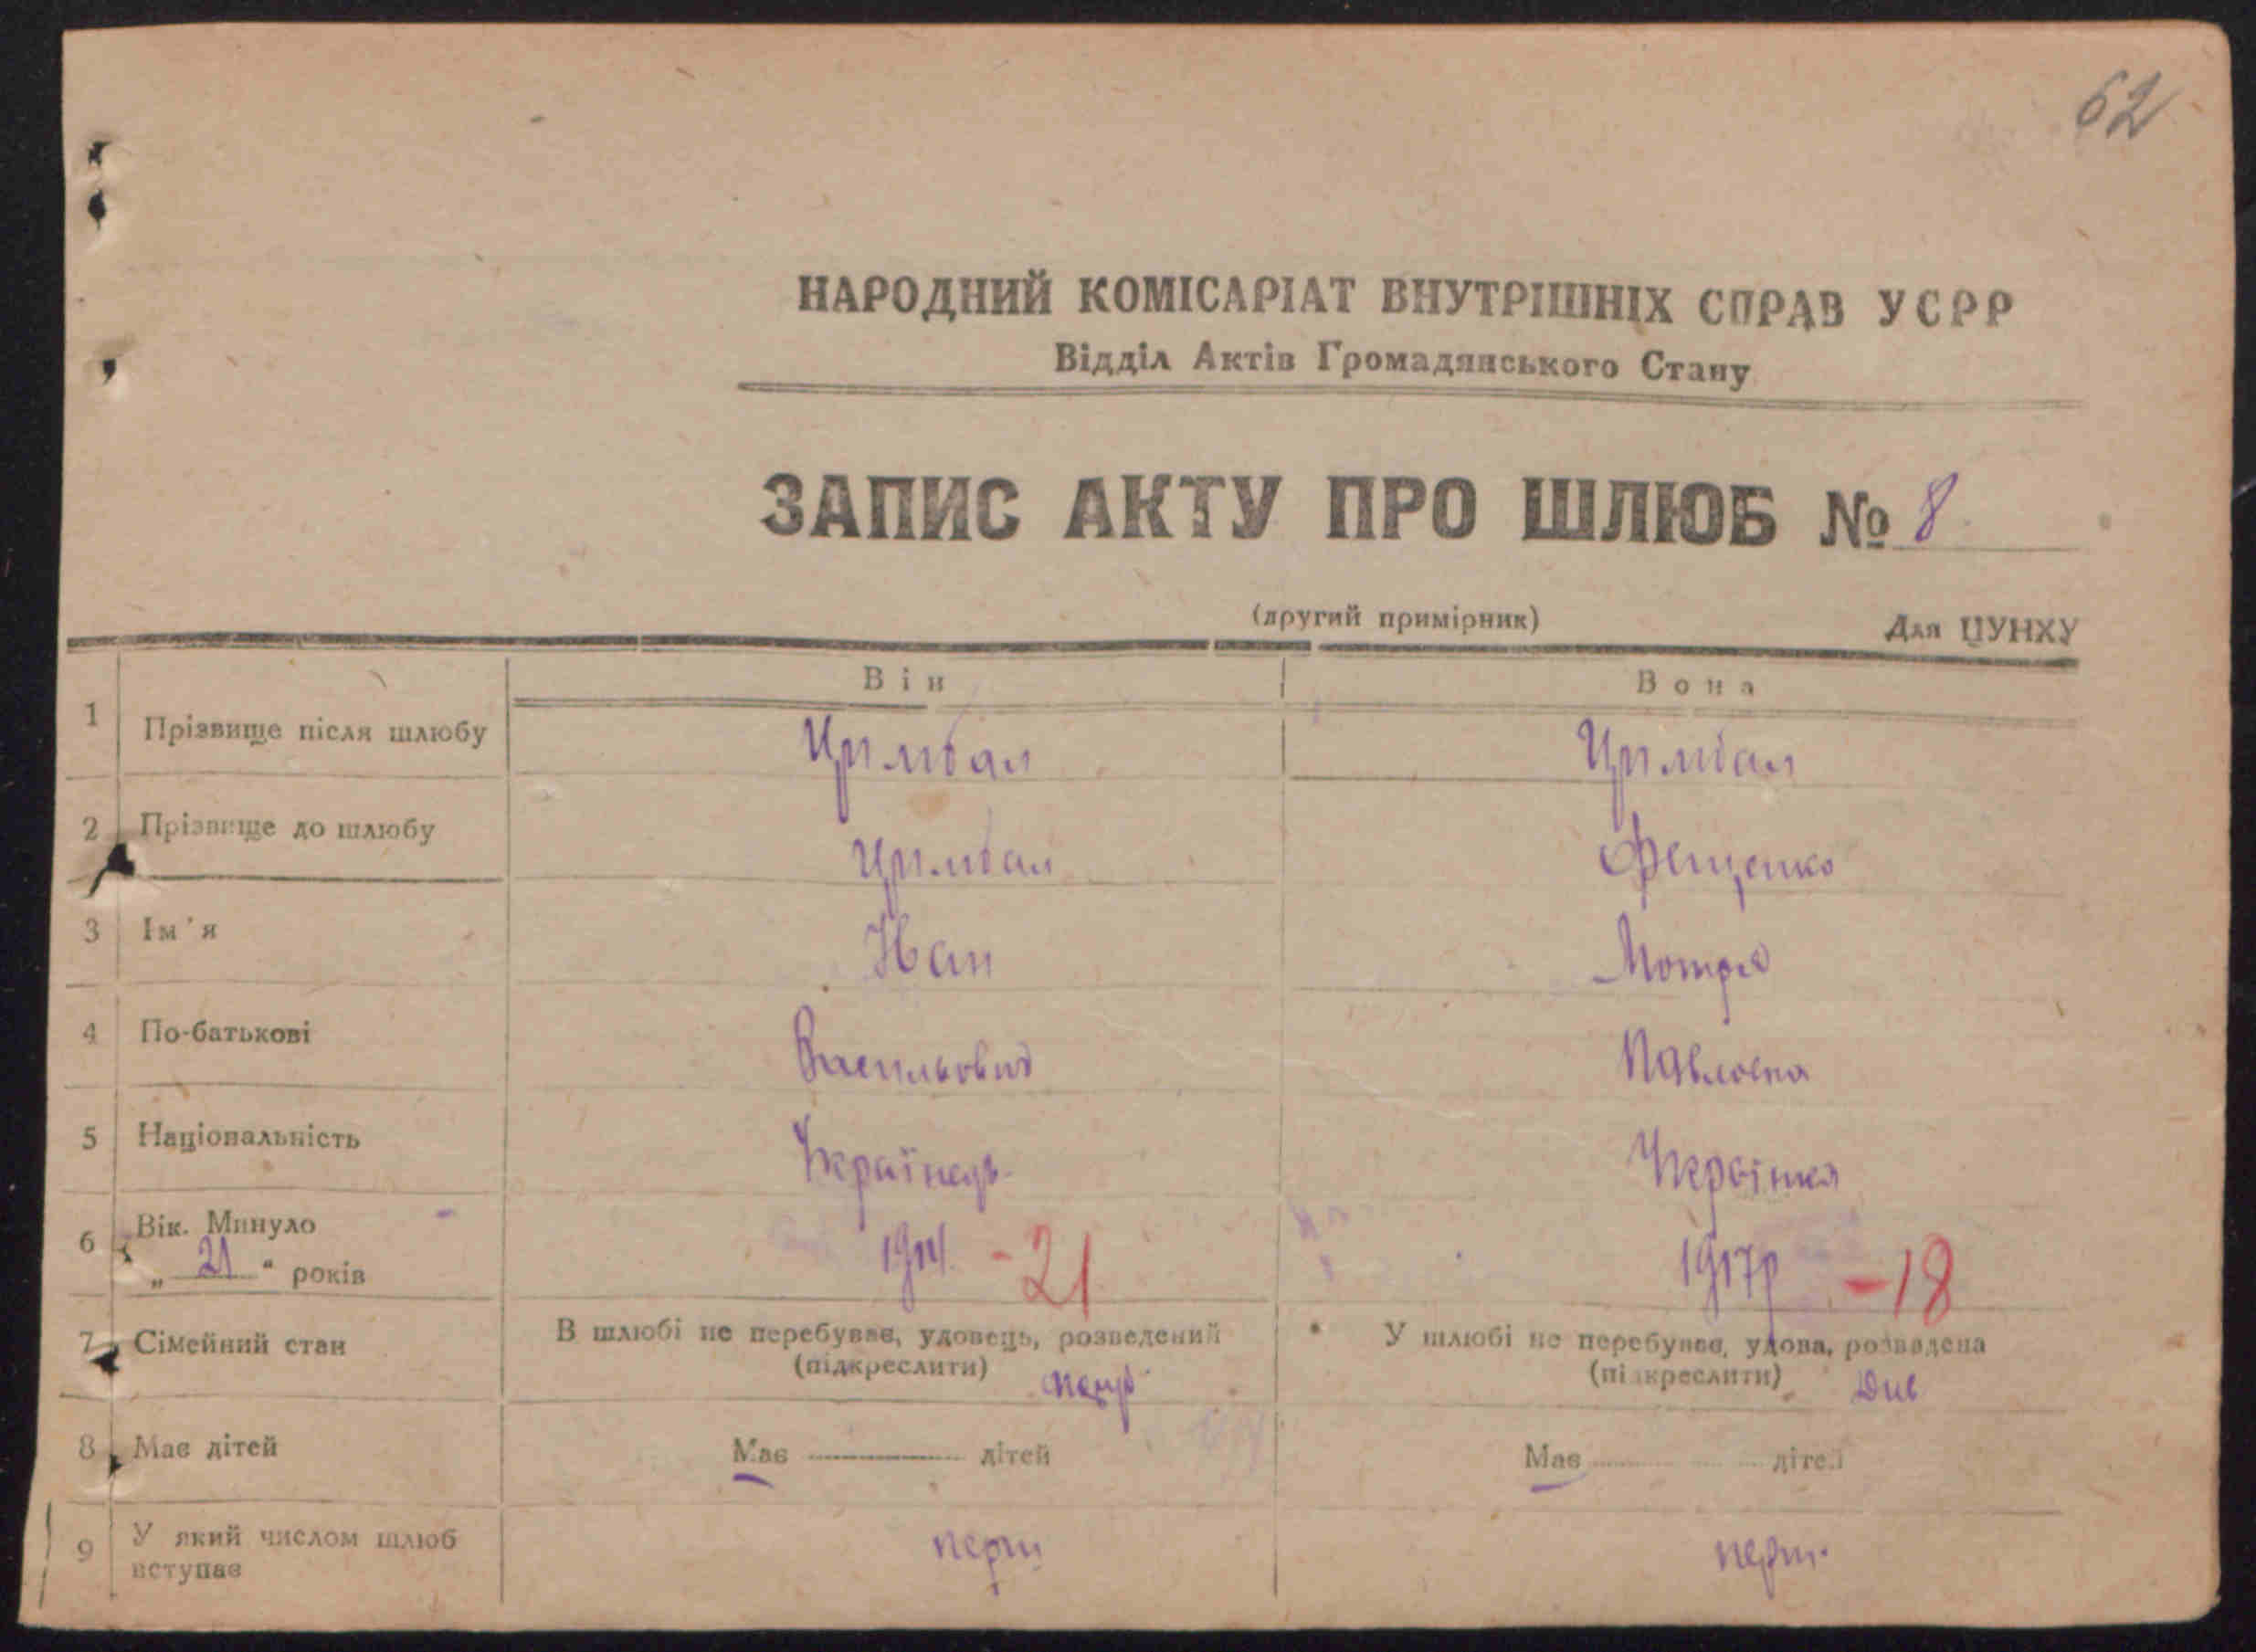 62
НАРОДНИЙ КОМІСАРІАТ ВНУТРІШНІХ СПРАВ УСРР
Відділ Актів Громадянського Стану
ЗАПИС АКТУ ПРО ШЛЮБ № 8
(другий примірник) Для ЦУНХУ
Він Вона
1 Прізвище після шлюбу Цимбал Цимбал
2 Прізвище до шлюбу Цимбал Фещенко
3 Ім'я Иван Мотря
4 По-батькові Васильович Павловна
5 Національність Українець Українка
6 Вік. Минуло
„ 21 “ років 1914 - 21 1917р - 18
7 Сімейний стан В шлюбі не перебуває, удовець, розведений У шлюбі не перебуває, удова, розведена
(підкреслити) (підкреслити)
8 Має дітей Має дітей Має дітей
9 У який числом шлюб перш перш.
вступає